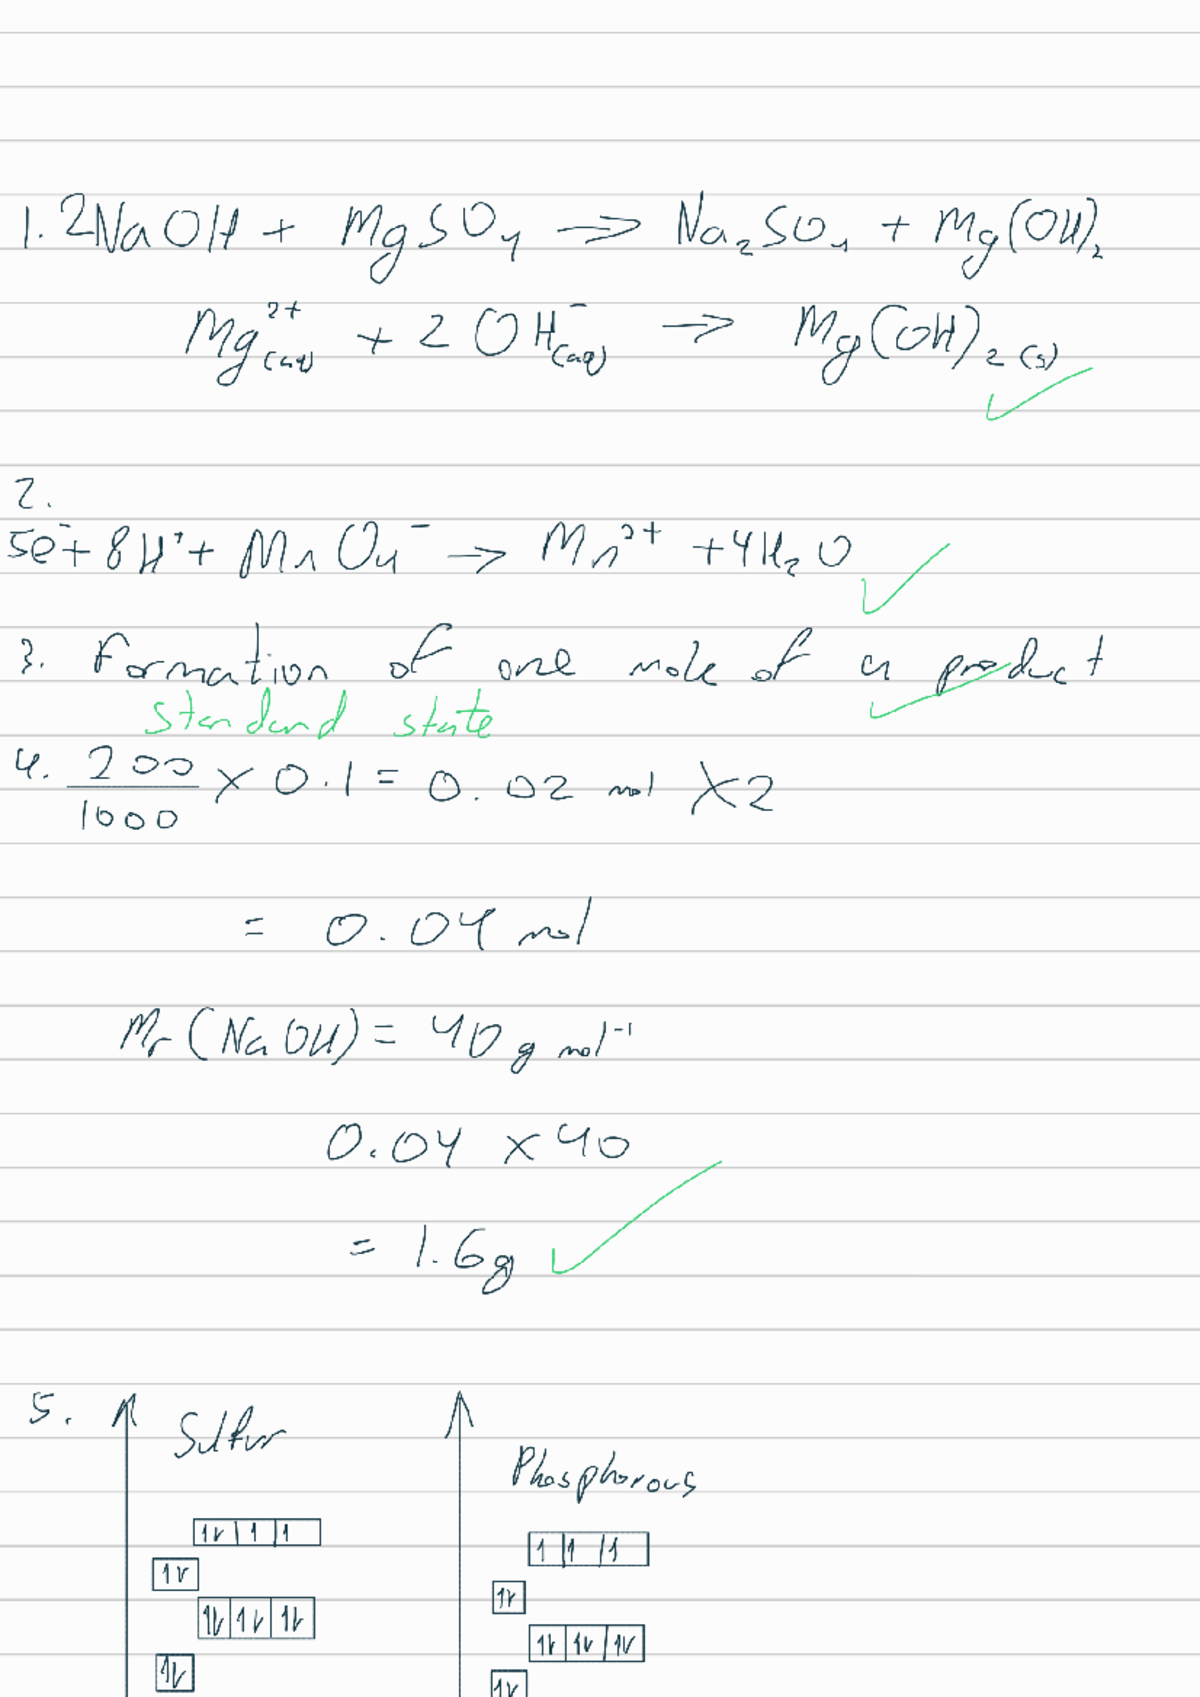 1. 2NaOH + MgSO₄ → Na₂SO₄ + Mg(OH)₂
Mg²⁺(aq) + 2OH⁻(aq) → Mg(OH)₂(s)
2.
5e⁻ + 8H⁺ + MnO₄⁻ → Mn²⁺ + 4H₂O
3. Formation of one mole of a product
standard state
4. 200/1000 × 0.1 = 0.02 mol ×2
= 0.04 mol
Mr (NaOH) = 40 g mol⁻¹
0.04 × 40
= 1.6g
5. Sulfur
Phosphorous